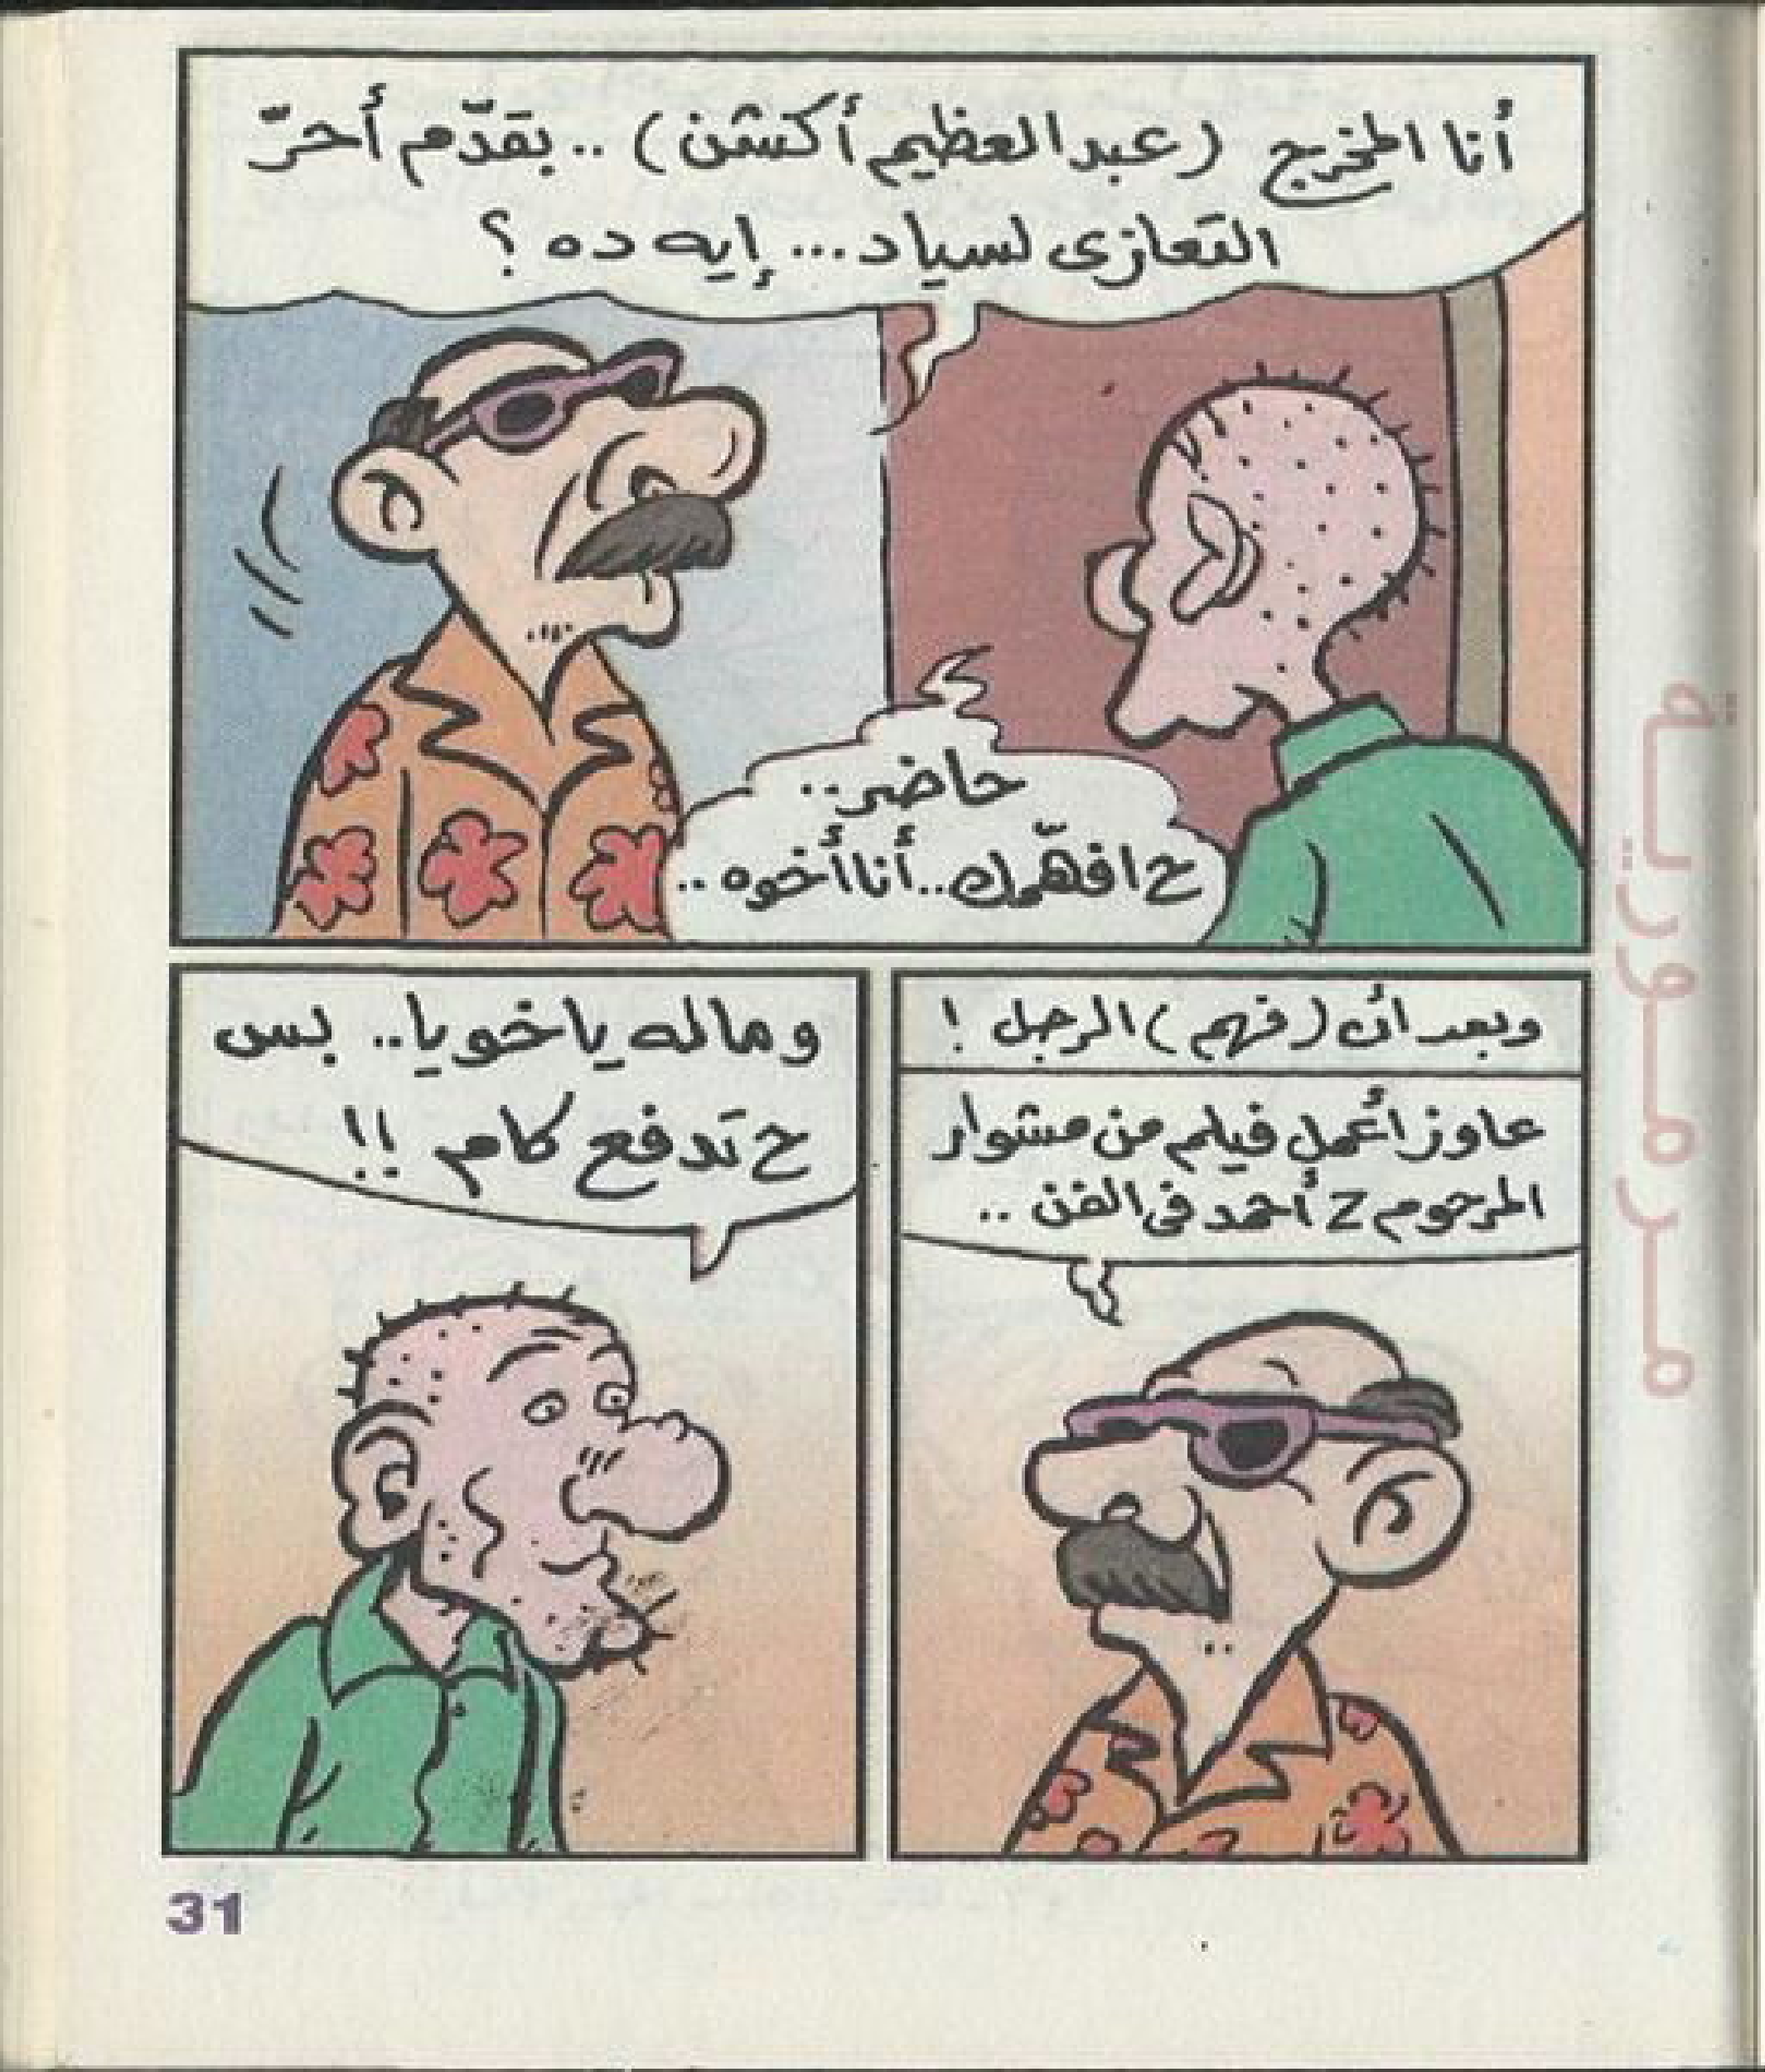 أنا المخرج (عبد العظيم أكشن).. بقدّم أحرّ
التعازى لسياد... إيه ده؟
حاضر..
ح افهّمك.. أنا أخوه..
وبعد أن (فهم) الرجل!
عاوز أعمل فيلم من مشوار
المرحوم Z أحمد فى الفن..
وماله ياخويا.. بس
ح تدفع كام!!
مرمورية
31